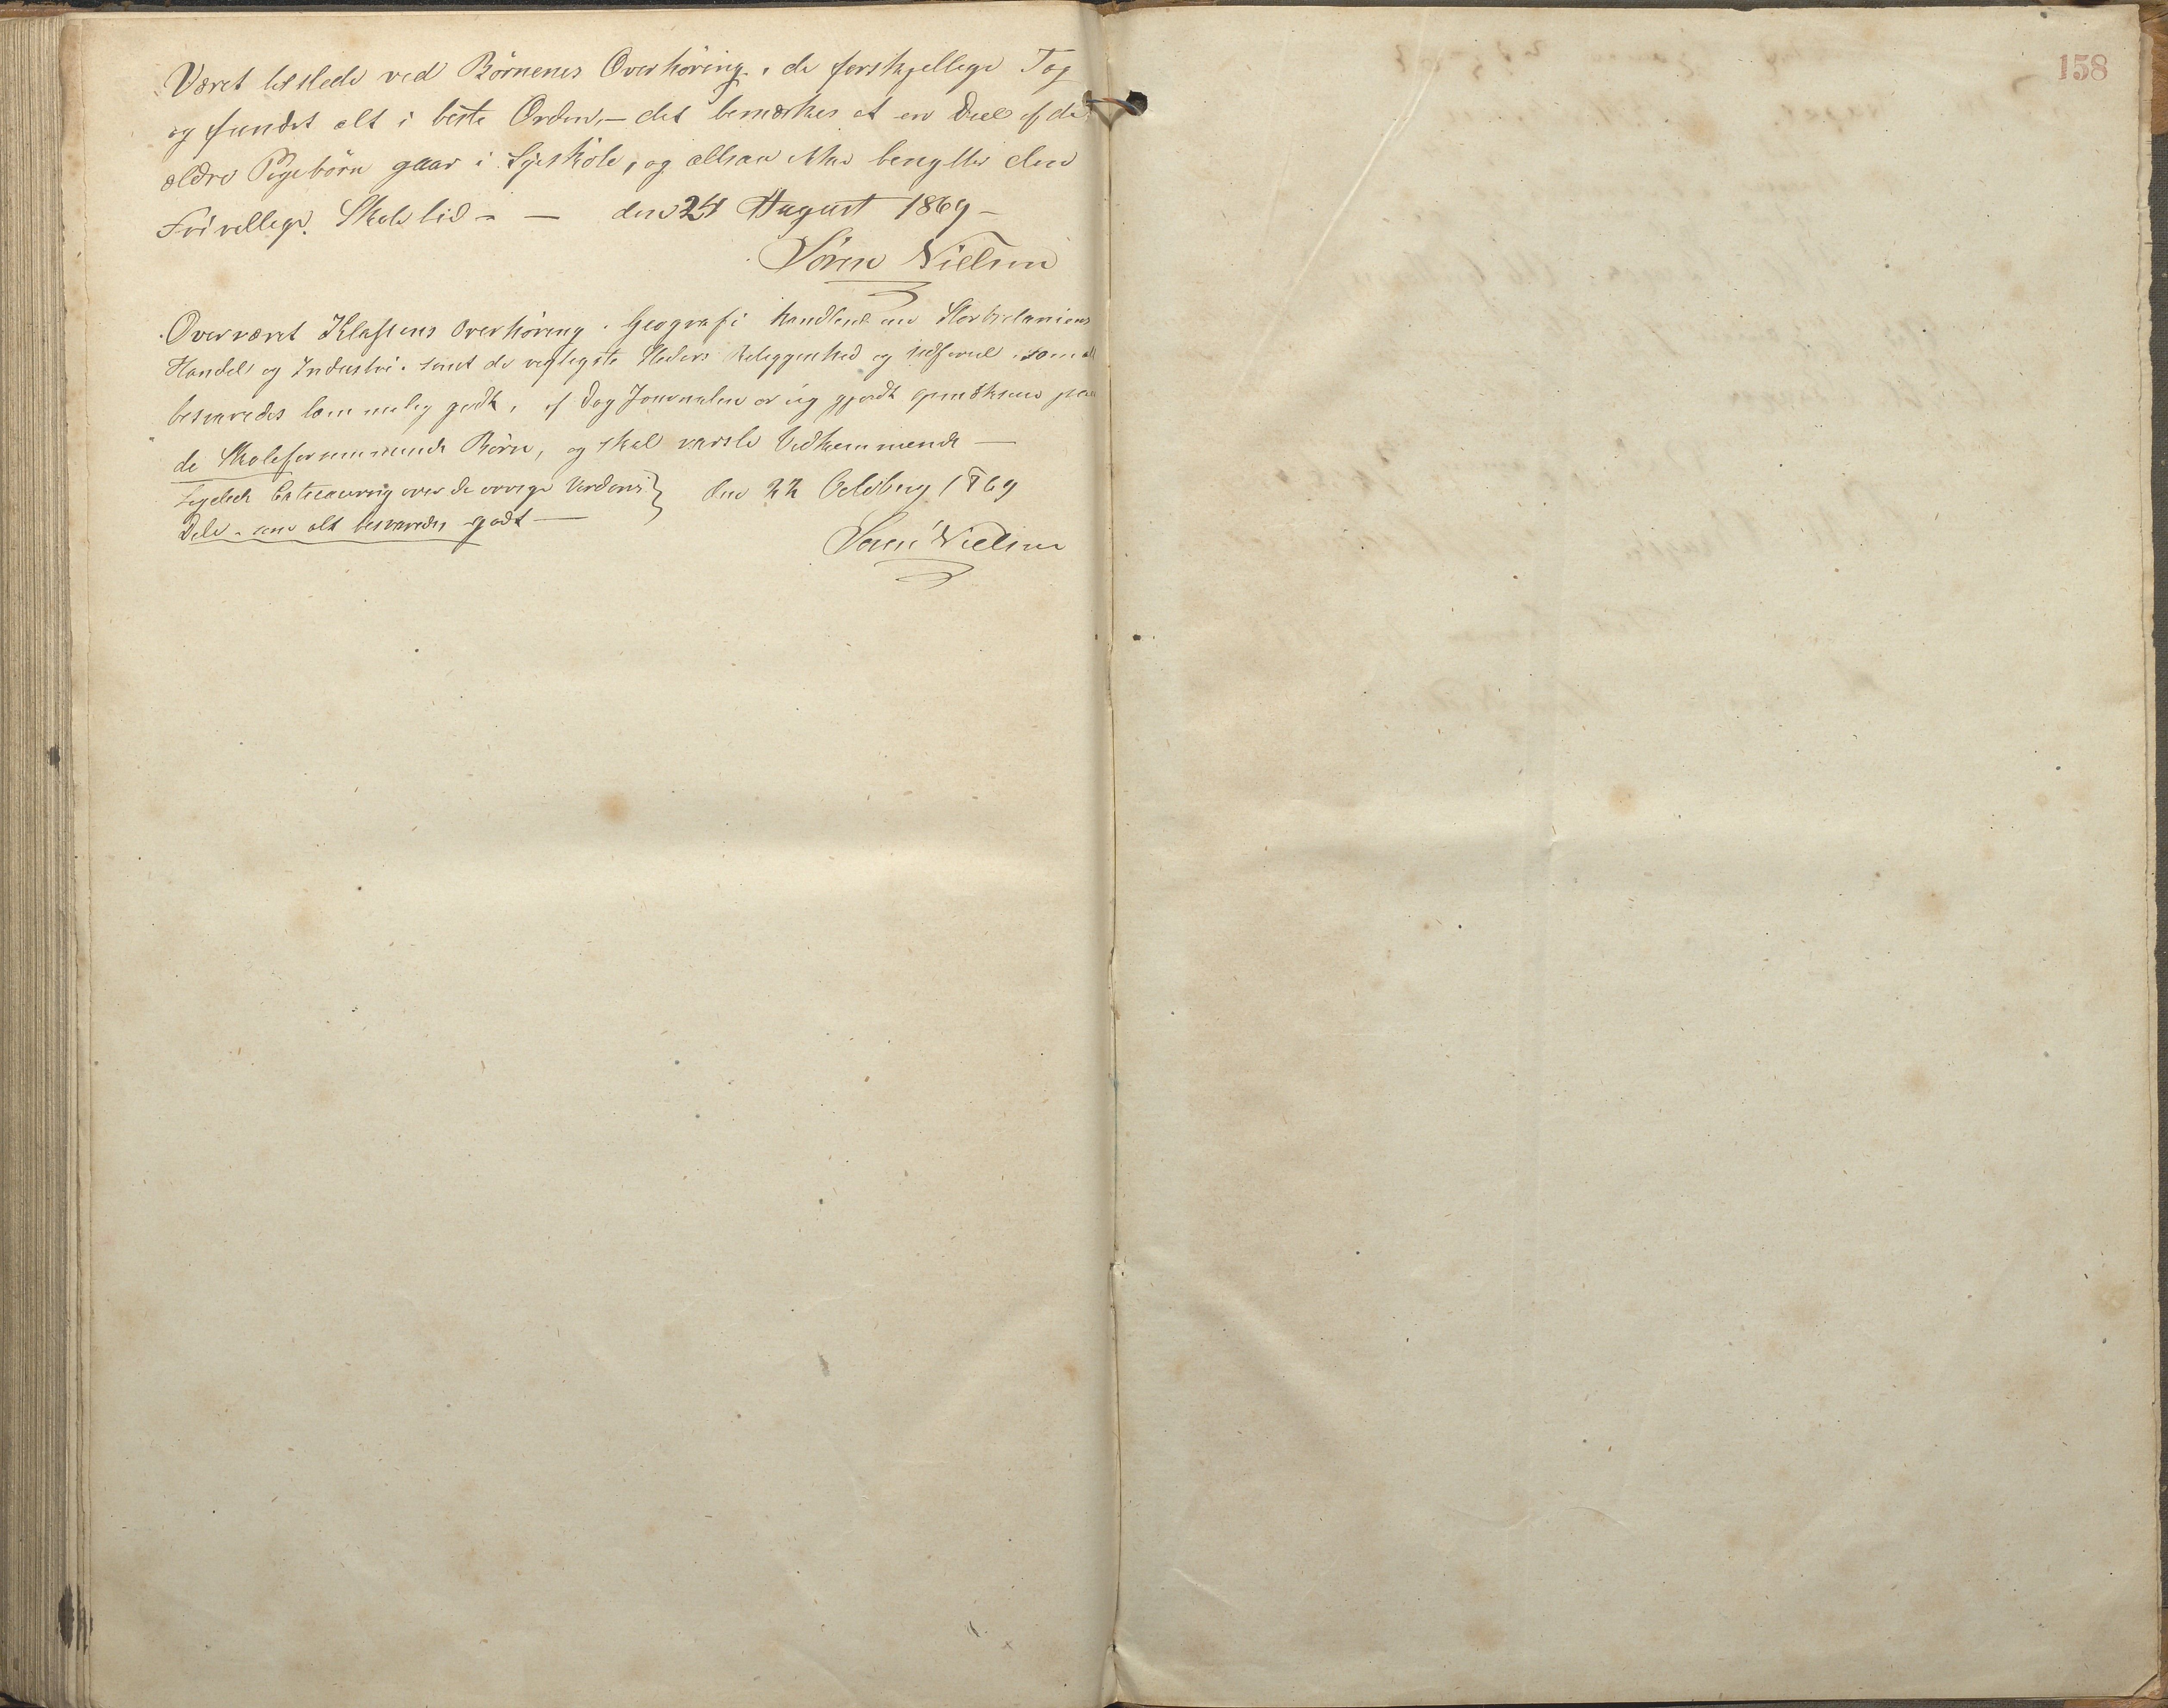 Været tilstede ved Börnenes Overhöring i de forskjellige Fag
og fundet alt i beste Orden, — det bemærkes at en Deel af de
ældre Pigebörn gaar i Syeskole, og altsaa ikke benytter den
Frivillige Skoletid — — den 24 August 1869 —
Sören Nielsen
Overværet Klassens Overhöring i Geografi handlende om Storbritaniens
Handel og Industri samt de vigtigste Steders Beliggenhed og som alt
besvaredes temmelig godt, af Dag Journalen er jeg gjordt opmærksom paa
de Skoleforsømmende Börn, og skal varsle Vedkommende —
Ligeledes over de övrige Verdens
Dele som alt besvaredes godt —
den 22 Octobr 1869
Sören Nielsen
158